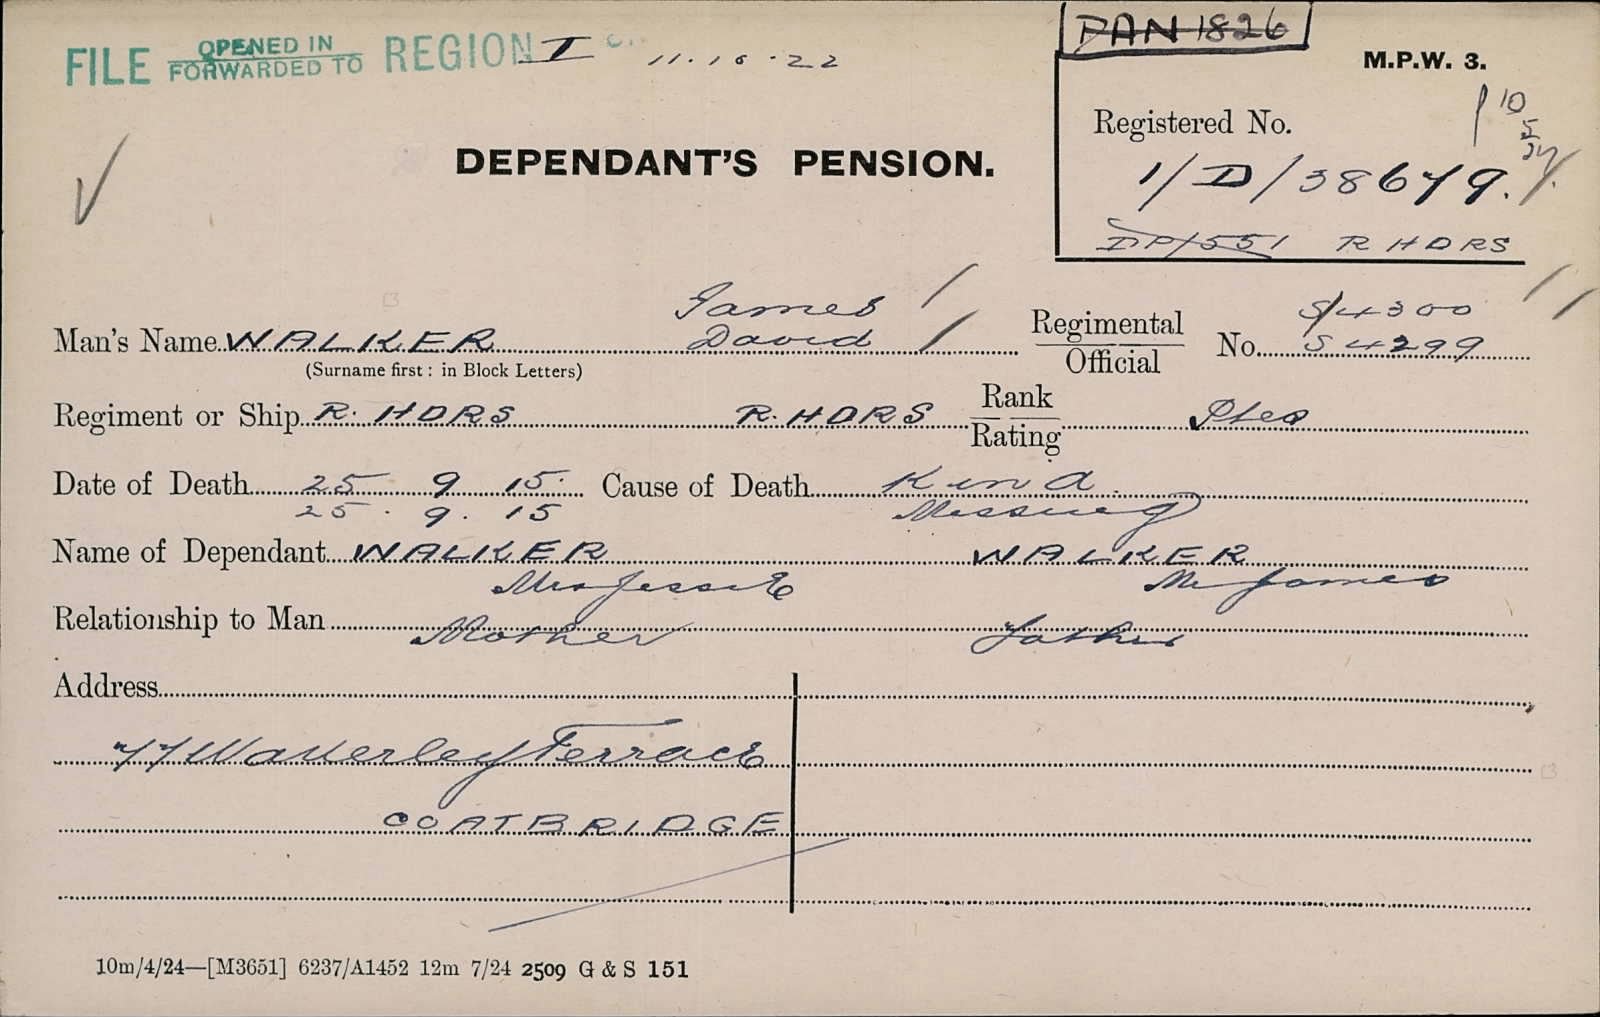 FILE OPENED IN FORWARDED TO REGION I 11.10.22
PAN 1826
M.P.W. 3.
Registered No.
10
5
24
DEPENDANT'S PENSION.
1/D/38679.
DP/551 R HDRS
James
Man's Name WALKER David
Regimental Official No. S/4300
S 4299
(Surname first : in Block Letters)
Regiment or Ship R. HDRS R. HDRS Rank Rating Ptes
Date of Death 25 9 15. Cause of Death K in a.
25. 9. 15 Missing
Name of Dependant WALKER WALKER
Mrs Jessie Mr James
Relationship to Man Mother Father
Address
77 Waverley Terrace
COATBRIDGE
10m/4/24—[M3651] 6237/A1452 12m 7/24 2509 G & S 151